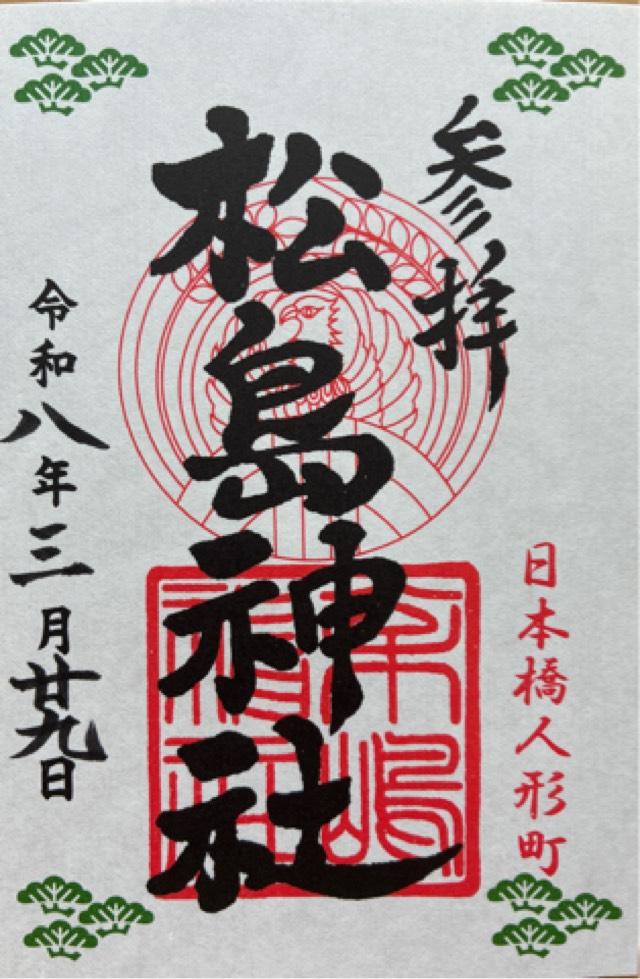 参拝
日本橋人形町
松島神社
令和八年三月廿九日